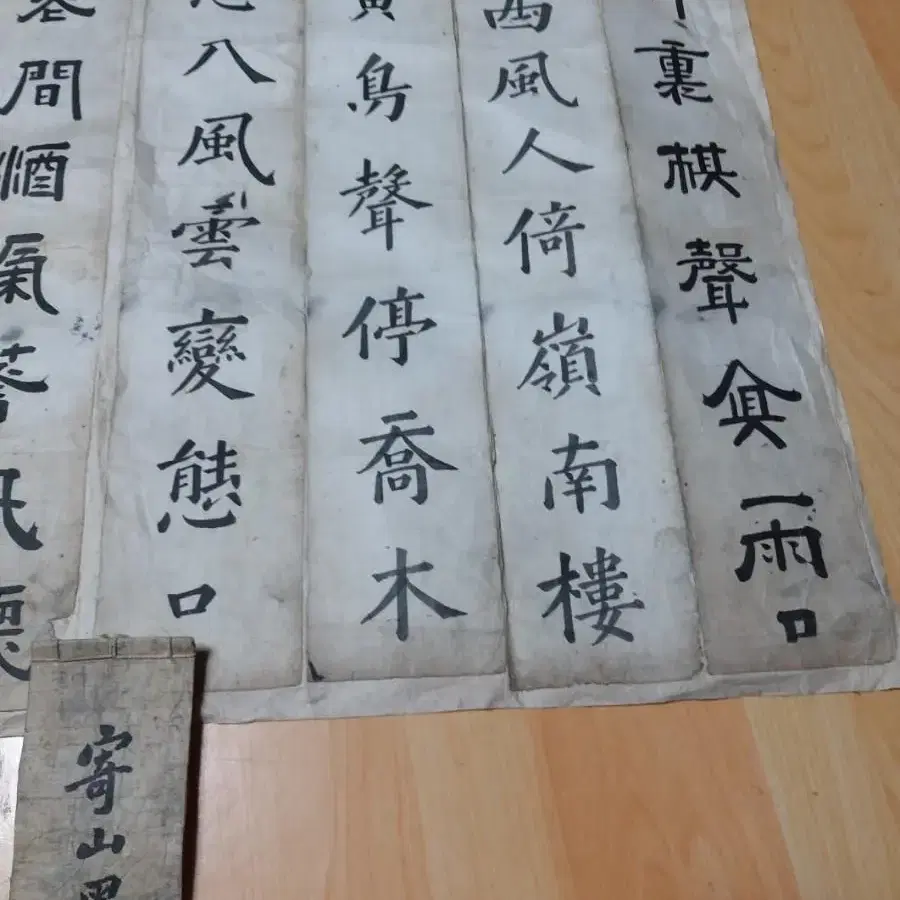 裏棋聲雨口
西風人倚嶺南樓
黃鳥聲停喬木
八風雲變態口
間酒氣
寄山